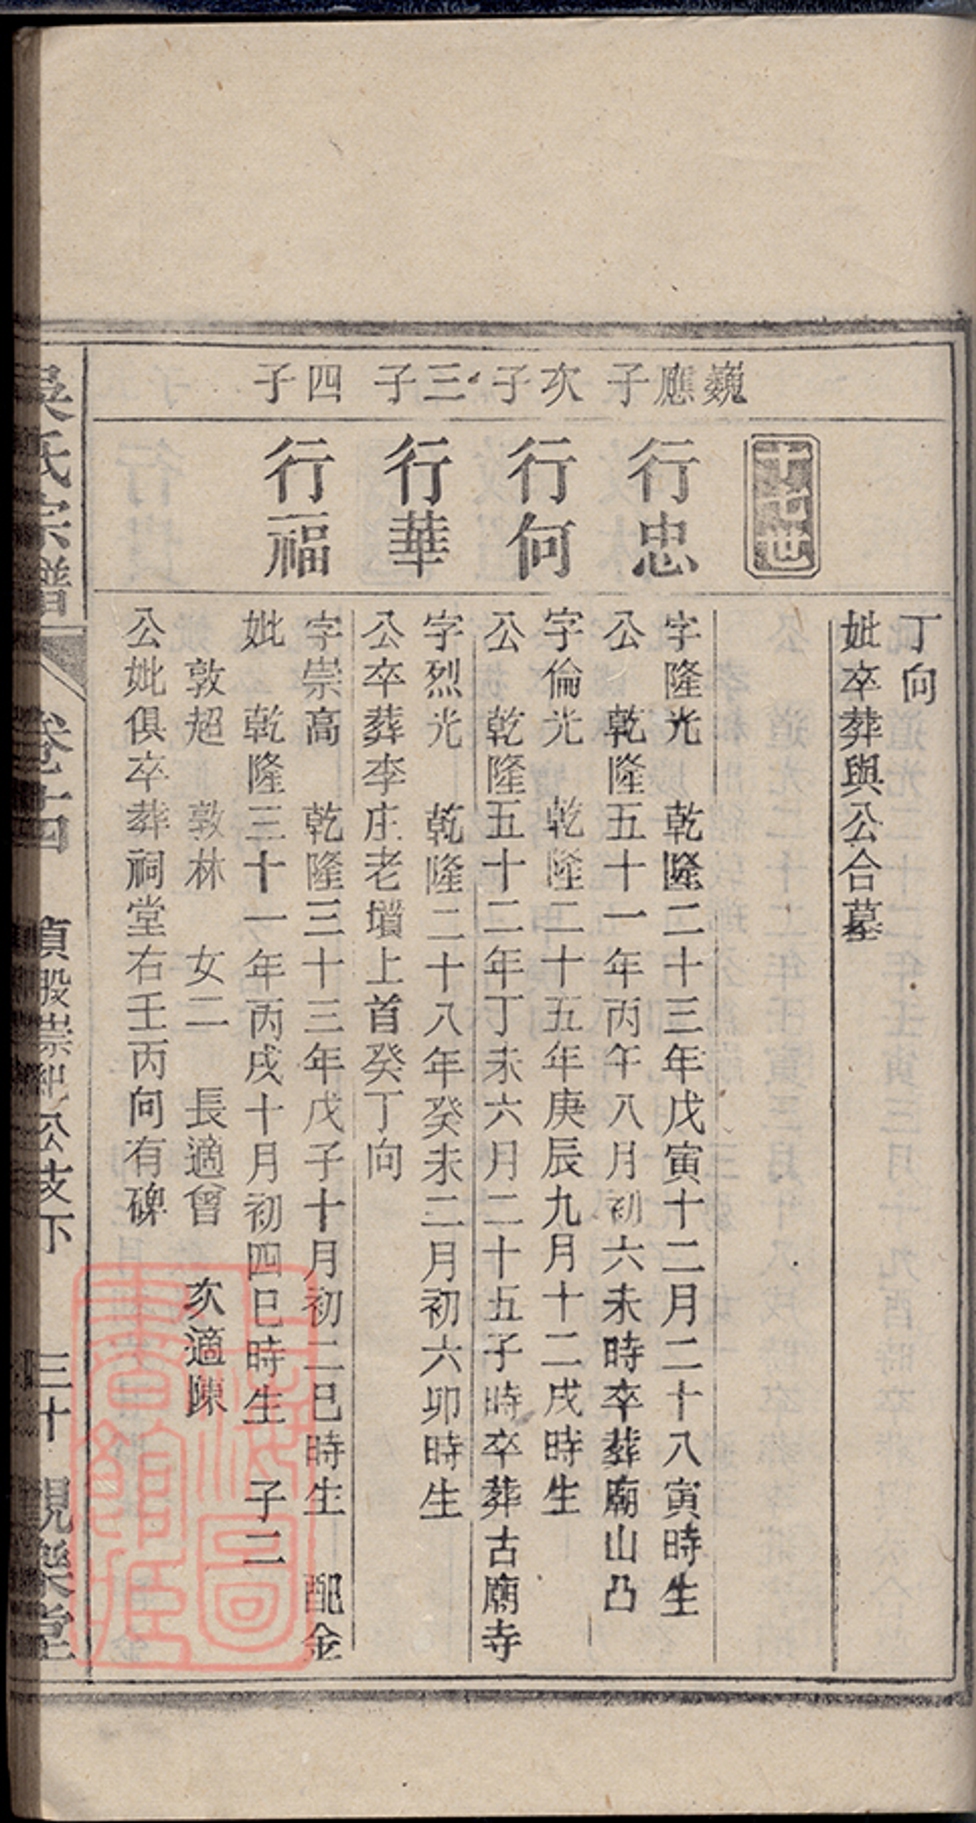 丁向
妣卒葬與公合墓
十七世
巍應子
行忠
字隆光 乾隆二十三年戊寅十二月二十八寅時生
公 乾隆五十一年丙午八月初六未時卒葬廟山凸
次子
行何
字倫光 乾隆二十五年庚辰九月十二戌時生
公 乾隆五十二年丁未六月二十五子時卒葬古廟寺
三子
行華
字烈光 乾隆二十八年癸未二月初六卯時生
公卒葬李庄老墳上首癸丁向
四子
行福
字崇高 乾隆三十三年戊子十月初二巳時生 配金
妣 乾隆三十一年丙戌十月初四巳時生 子二
敦超 敦林 女二 長適曾 次適陳
公妣俱卒葬祠堂右壬丙向有碑
吳氏宗譜 卷十四 貞股崇 公技下 三十 覌樂堂
上海圖書館藏